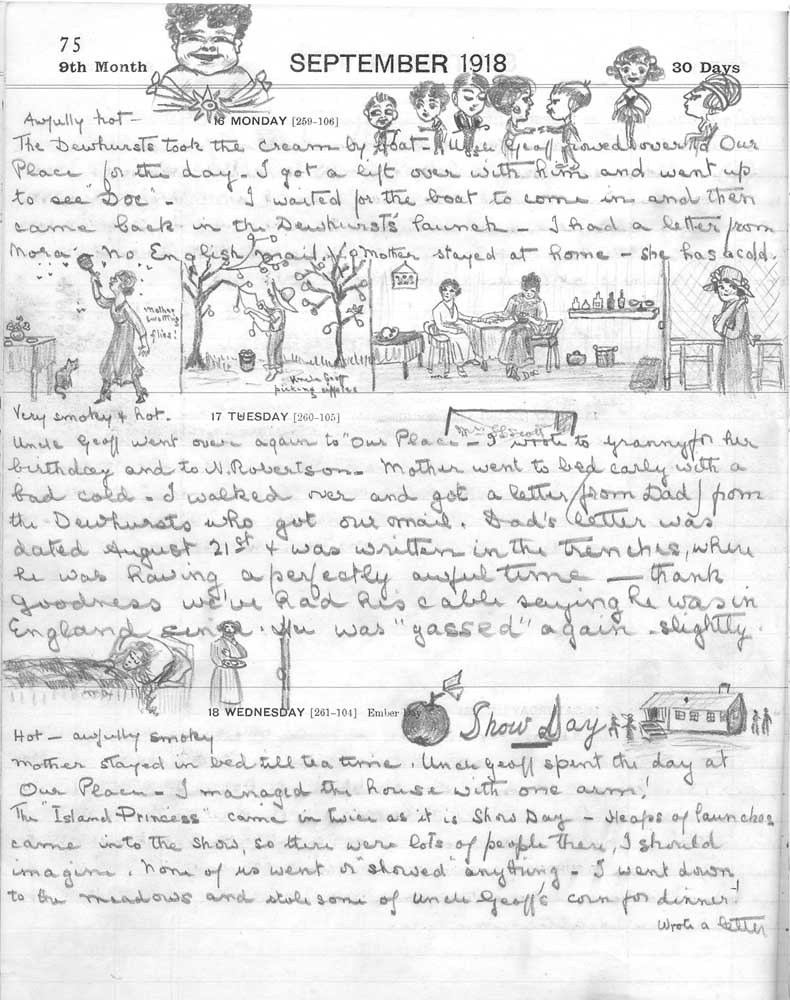 75
9th Month
SEPTEMBER 1918
30 Days
16 MONDAY [259-106]
Awfully hot -
The Dewhursts took the cream by boat - Uncle Geoff rowed over to Our
Place for the day - I got a lift over with him and went up
to see "Doc" I waited for the boat to come in and then
came back in the Dewhursts' launch - I had a letter from
Nora. No English mail. Mother stayed at home - she has a cold.
Mother
swatting
flies!
Uncle Geoff
picking apples
me
Doc
17 TUESDAY [260-105]
Very smoky & hot.
Mrs. Scott
Uncle Geoff went over again to "Our Place - I wrote to granny for her
birthday and to N. Robertson - Mother went to bed early with a
bad cold - I walked over and got a letter (from Dad) from
the Dewhursts who got our mail. Dad's letter was
dated August 21st & was written in the trenches, where
he was having a perfectly awful time — thank
goodness we've had his cable saying he was in
England since. He was "gassed" again - slightly.
18 WEDNESDAY [261-104] Ember Day
Show Day
Hot - awfully smoky
Mother stayed in bed till tea time. Uncle Geoff spent the day at
Our Place - I managed the house with one arm!
The "Island Princess" came in twice as it is Show Day - Heaps of launches
came into the show, so there were lots of people there, I should
imagine. None of us went or "showed" anything - I went down
to the meadows and stole some of Uncle Geoff's corn for dinner!
Wrote a letter